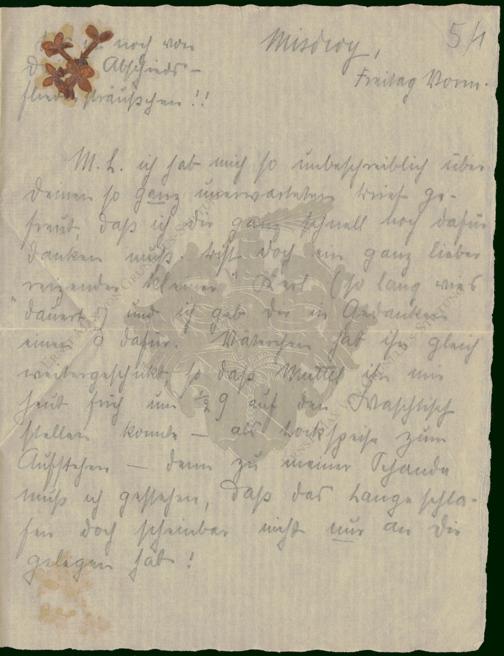 noch von
Abschieds-
fliedersträußchen!!
Misdroy,
5/1
Freitag Vorm.
M. L. ich hab mich so unbeschreiblich über
Deinen so ganz unerwarteten Brief ge-
freut, daß ich Dir ganz schnell noch dafür
danken muß. Bist doch ein ganz lieber
reizender "kleiner" Kerl (so lang was
"dauert"!) und ich geb Dir in Gedanken
einen dafür. Väterchen hat ihn gleich
weitergeschickt, so daß Mutti ihn mir
heut früh um ½ 9 auf den Waschtisch
stellen konnte – als Lockspeise zum
Aufstehen – denn zu meiner Schande
muß ich gestehen, daß das Lange schla-
fen doch scheinbar nicht nur an Dir
gelegen hat!